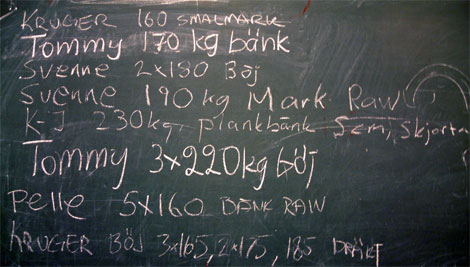 KRUGER 160 SMALMARK
Tommy 170 kg bänk
Svenne 2x180 Böj
Svenne 190 kg Mark Raw
KJ 230kg plankbänk Sem, Skjorta
Tommy 3x220kg böj
Pelle 5x160 BÄNK RAW
KRUGER BÖJ 3x165, 2x175, 185 DRÄKT